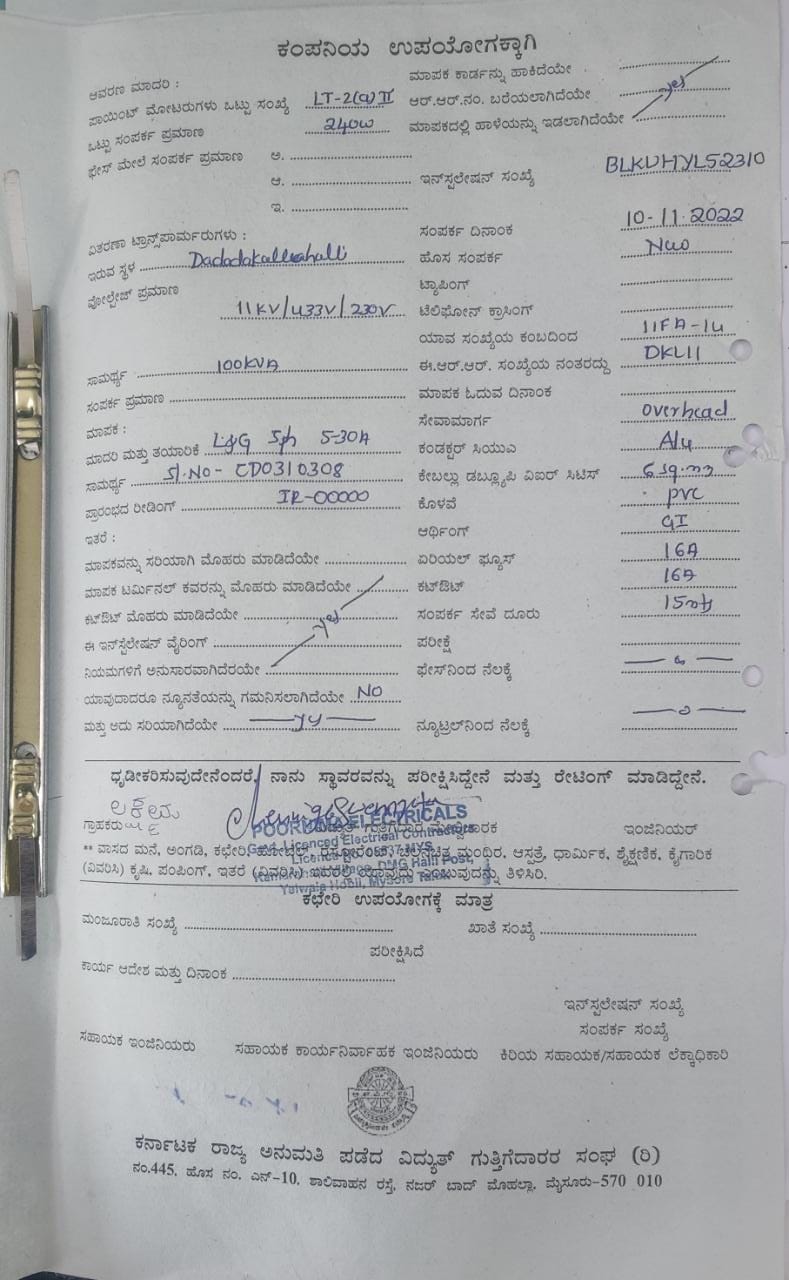 ಕಂಪನಿಯ ಉಪಯೋಗಕ್ಕಾಗಿ
ಆವರಣ ಮಾದರಿ : ಮಾಪಕ ಕಾರ್ಡನ್ನು ಹಾಕಿದೆಯೇ
ಪಾಯಿಂಟ್ ಮೋಟರುಗಳು ಒಟ್ಟು ಸಂಖ್ಯೆ LT-2(a)II ಆರ್.ಆರ್.ನಂ. ಬರೆಯಲಾಗಿದೆಯೇ yes
ಒಟ್ಟು ಸಂಪರ್ಕ ಪ್ರಮಾಣ 240w ಮಾಪಕದಲ್ಲಿ ಹಾಳೆಯನ್ನು ಇಡಲಾಗಿದೆಯೇ
ಫೇಸ್ ಮೇಲೆ ಸಂಪರ್ಕ ಪ್ರಮಾಣ ಅ.
ಆ. ಇನ್‌ಸ್ಟಲೇಷನ್ ಸಂಖ್ಯೆ BLKUHYL52310
ಇ.
ವಿತರಣಾ ಟ್ರಾನ್ಸ್‌ಪಾರ್ಮರುಗಳು : ಸಂಪರ್ಕ ದಿನಾಂಕ 10-11-2022
ಇರುವ ಸ್ಥಳ ಹೊಸ ಸಂಪರ್ಕ New
ವೋಲ್ಟೇಜ್ ಪ್ರಮಾಣ ಟ್ಯಾಪಿಂಗ್
11KV/433V/230V ಟೆಲಿಫೋನ್ ಕ್ರಾಸಿಂಗ್
ಯಾವ ಸಂಖ್ಯೆಯ ಕಂಬದಿಂದ 11FA-14
ಸಾಮರ್ಥ್ಯ 100KVA ಈ.ಆರ್.ಆರ್. ಸಂಖ್ಯೆಯ ನಂತರದ್ದು DKL11
ಸಂಪರ್ಕ ಪ್ರಮಾಣ ಮಾಪಕ ಓದುವ ದಿನಾಂಕ
ಮಾಪಕ : ಸೇವಾಮಾರ್ಗ overhead
ಮಾದರಿ ಮತ್ತು ತಯಾರಿಕೆ L&G 5-30A ಕಂಡಕ್ಟರ್ ಸಿಯುಎ Alu
ಸಾಮರ್ಥ್ಯ Sl.No- CD0310308 ಕೇಬಲ್ಲು ಡಬ್ಲ್ಯೂಪಿ ವಿಐರ್ ಸಿಟಿಸ್ 6 sq.mm
ಪ್ರಾರಂಭದ ರೀಡಿಂಗ್ IR-00000 ಕೊಳವೆ PVC
ಇತರೆ : ಆರ್ಥಿಂಗ್ GI
ಮಾಪಕವನ್ನು ಸರಿಯಾಗಿ ಮೊಹರು ಮಾಡಿದೆಯೇ ಏರಿಯಲ್ ಫ್ಯೂಸ್ 16A
ಮಾಪಕ ಟರ್ಮಿನಲ್ ಕವರನ್ನು ಮೊಹರು ಮಾಡಿದೆಯೇ ಕಟ್‌ಔಟ್ 16A
ಕಟ್‌ಔಟ್ ಮೊಹರು ಮಾಡಿದೆಯೇ yes ಸಂಪರ್ಕ ಸೇವೆ ದೂರು
ಈ ಇನ್‌ಸ್ಟಲೇಷನ್ ವೈರಿಂಗ್ ಪರೀಕ್ಷೆ
ನಿಯಮಗಳಿಗೆ ಅನುಸಾರವಾಗಿದೆರಯೇ ಫೇಸ್‌ನಿಂದ ನೆಲಕ್ಕೆ
ಯಾವುದಾದರೂ ನ್ಯೂನತೆಯನ್ನು ಗಮನಿಸಲಾಗಿದೆಯೇ NO
ಮತ್ತು ಅದು ಸರಿಯಾಗಿದೆಯೇ ನ್ಯೂಟ್ರಲ್‌ನಿಂದ ನೆಲಕ್ಕೆ
ಧೃಡೀಕರಿಸುವುದೇನೆಂದರೆ, ನಾನು ಸ್ಥಾವರವನ್ನು ಪರೀಕ್ಷಿಸಿದ್ದೇನೆ ಮತ್ತು ರೇಟಿಂಗ್ ಮಾಡಿದ್ದೇನೆ.
ಗ್ರಾಹಕರು ಇಂಜಿನಿಯರ್
POORNIMA ELECTRICALS
Govt. Licenced Electrical Contractors
** ವಾಸದ ಮನೆ, ಅಂಗಡಿ, ಕಛೇರಿ, ಹೋಟೆಲ್, ರೆಸ್ಟೋರೆಂಟ್, ಚಲನಚಿತ್ರ ಮಂಧಿರ, ಆಸತ್ರೆ, ಧಾರ್ಮಿಕ, ಶೈಕ್ಷಣಿಕ, ಕೈಗಾರಿಕ
(ವಿವರಿಸಿ) ಕೃಷಿ, ಪಂಪಿಂಗ್, ಇತರೆ (ವಿವರಿಸಿ) ಇವರಲ್ಲಿ ಯಾವುದು ಎಂಬುವುದನ್ನು ತಿಳಿಸಿರಿ.
Yalwala Hobli, Mysore
ಕಛೇರಿ ಉಪಯೋಗಕ್ಕೆ ಮಾತ್ರ
ಮಂಜೂರಾತಿ ಸಂಖ್ಯೆ ಖಾತೆ ಸಂಖ್ಯೆ
ಪರೀಕ್ಷಿಸಿದೆ
ಕಾರ್ಯ ಆದೇಶ ಮತ್ತು ದಿನಾಂಕ
ಇನ್‌ಸ್ಟಲೇಷನ್ ಸಂಖ್ಯೆ
ಸಂಪರ್ಕ ಸಂಖ್ಯೆ
ಸಹಾಯಕ ಇಂಜಿನಿಯರು ಸಹಾಯಕ ಕಾರ್ಯನಿರ್ವಾಹಕ ಇಂಜಿನಿಯರು ಕಿರಿಯ ಸಹಾಯಕ/ಸಹಾಯಕ ಲೆಕ್ಕಾಧಿಕಾರಿ
ಕರ್ನಾಟಕ ರಾಜ್ಯ ಅನುಮತಿ ಪಡೆದ ವಿದ್ಯುತ್ ಗುತ್ತಿಗೆದಾರರ ಸಂಘ (ರಿ)
ನಂ.445, ಹೊಸ ನಂ. ಎನ್-10, ಶಾಲಿವಾಹನ ರಸ್ತೆ, ನಜರ್ ಬಾದ್ ಮೊಹಲ್ಲಾ, ಮೈಸೂರು-570 010